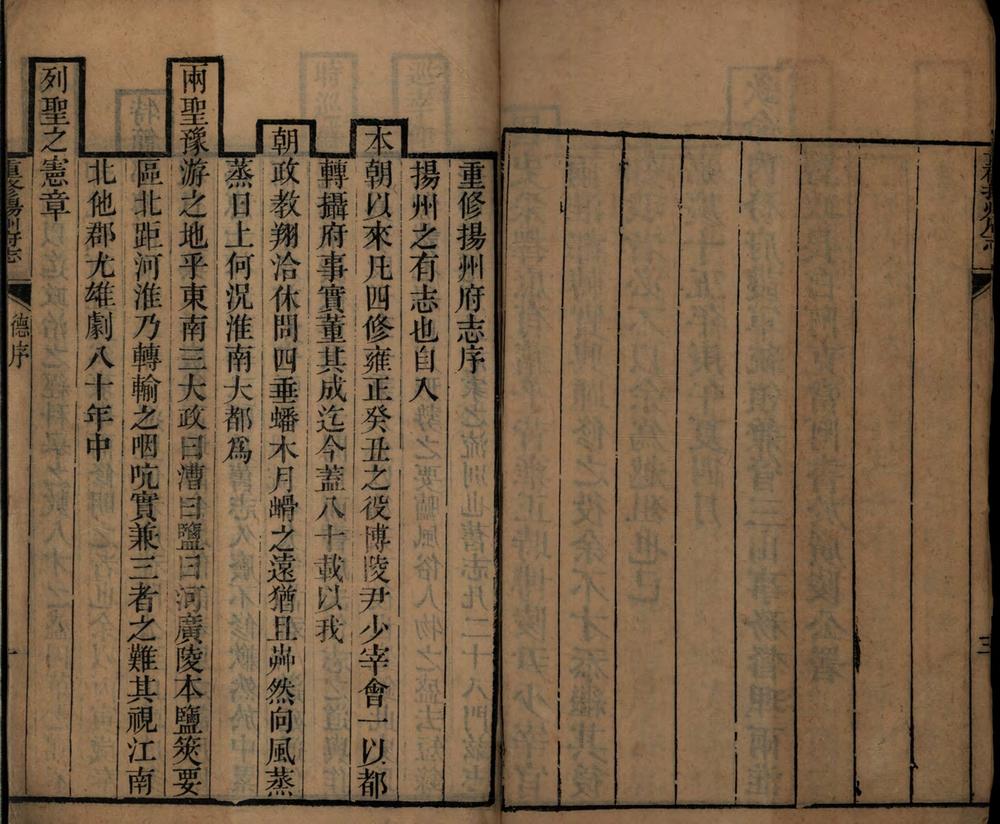 三
重修揚州府志序
揚州之有志也自入
本朝以來凡四修雍正癸丑之役博陵尹少宰會一以都
轉攝府事實董其成迄今蓋八十載以我
朝政教翔洽休問四垂蟠木月𡺾之遠猶且歸然向風蒸
蒸日上何況淮南大都爲
兩聖豫游之地乎東南三大政曰漕曰鹽曰河廣陵本鹽筴要
區北距河淮乃轉輸之咽吭實兼三者之難其視江南
北他郡尤雄劇八十年中
列聖之憲章
重修揚州府志
德序
一